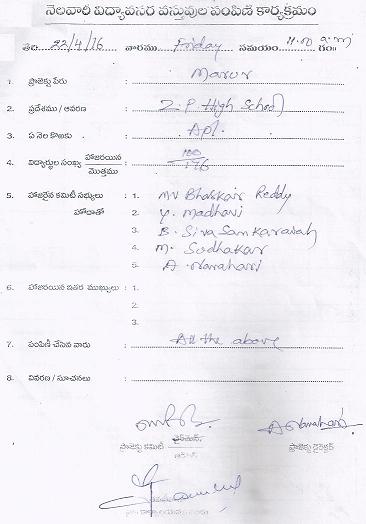 నెలవారీ విద్యావసర వస్తువుల పంపిణీ కార్యక్రమం
తేది 22/4/16 వారము Friday సమయం
1. ప్రాజెక్టు పేరు : Marur
2. ప్రదేశము / ఆవరణ : Z.P. High School
3. ఏ నెల కొఱకు : Apl.
4. విద్యార్థుల సంఖ్య హాజరయిన : 100
మొత్తము 176
5. హాజరైన కమిటీ సభ్యులు : 1. MV Bhaskar Reddy
హోదాతో 2. Y. Madhavi
3. B. Siva Sankaraiah
4. M. Sudhakar
5. A. Narahari
6. హాజరయిన ఇతర ముఖ్యులు : 1.
2.
3.
7. పంపిణీ చేసిన వారు : All the above
8. వివరణ / సూచనలు :
A. Narahari
ప్రాజెక్టు కమిటీ ఛైర్మన్ ప్రాజెక్టు డైరెక్టర్